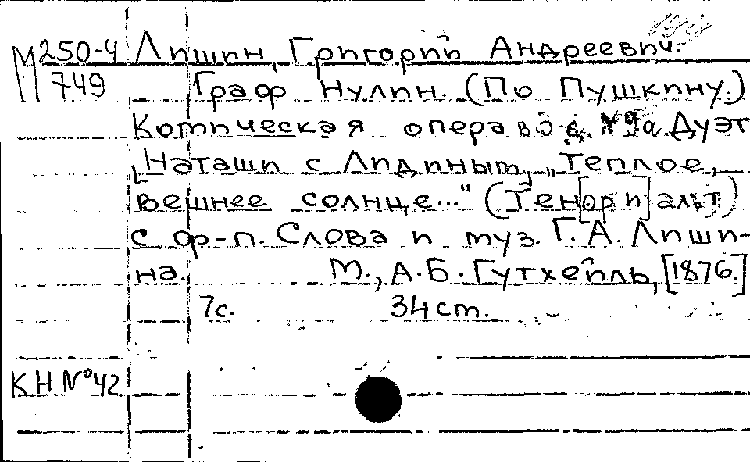 М 250-4 Лишин, Григорий Андреевич.
749 Граф Нулин. (По Пушкину.)
Комическая опера в 3 д. № 9а. Дуэт
[Наташи с Лидиным, „Теплое,
вешнее солнце..." (Тено[р и] альт)
с ф-п. Слова и муз. Г. А. Лиши-
на. М., А. Б. Гутхейль, [1876.]
7с. 34cm.
КН № 42